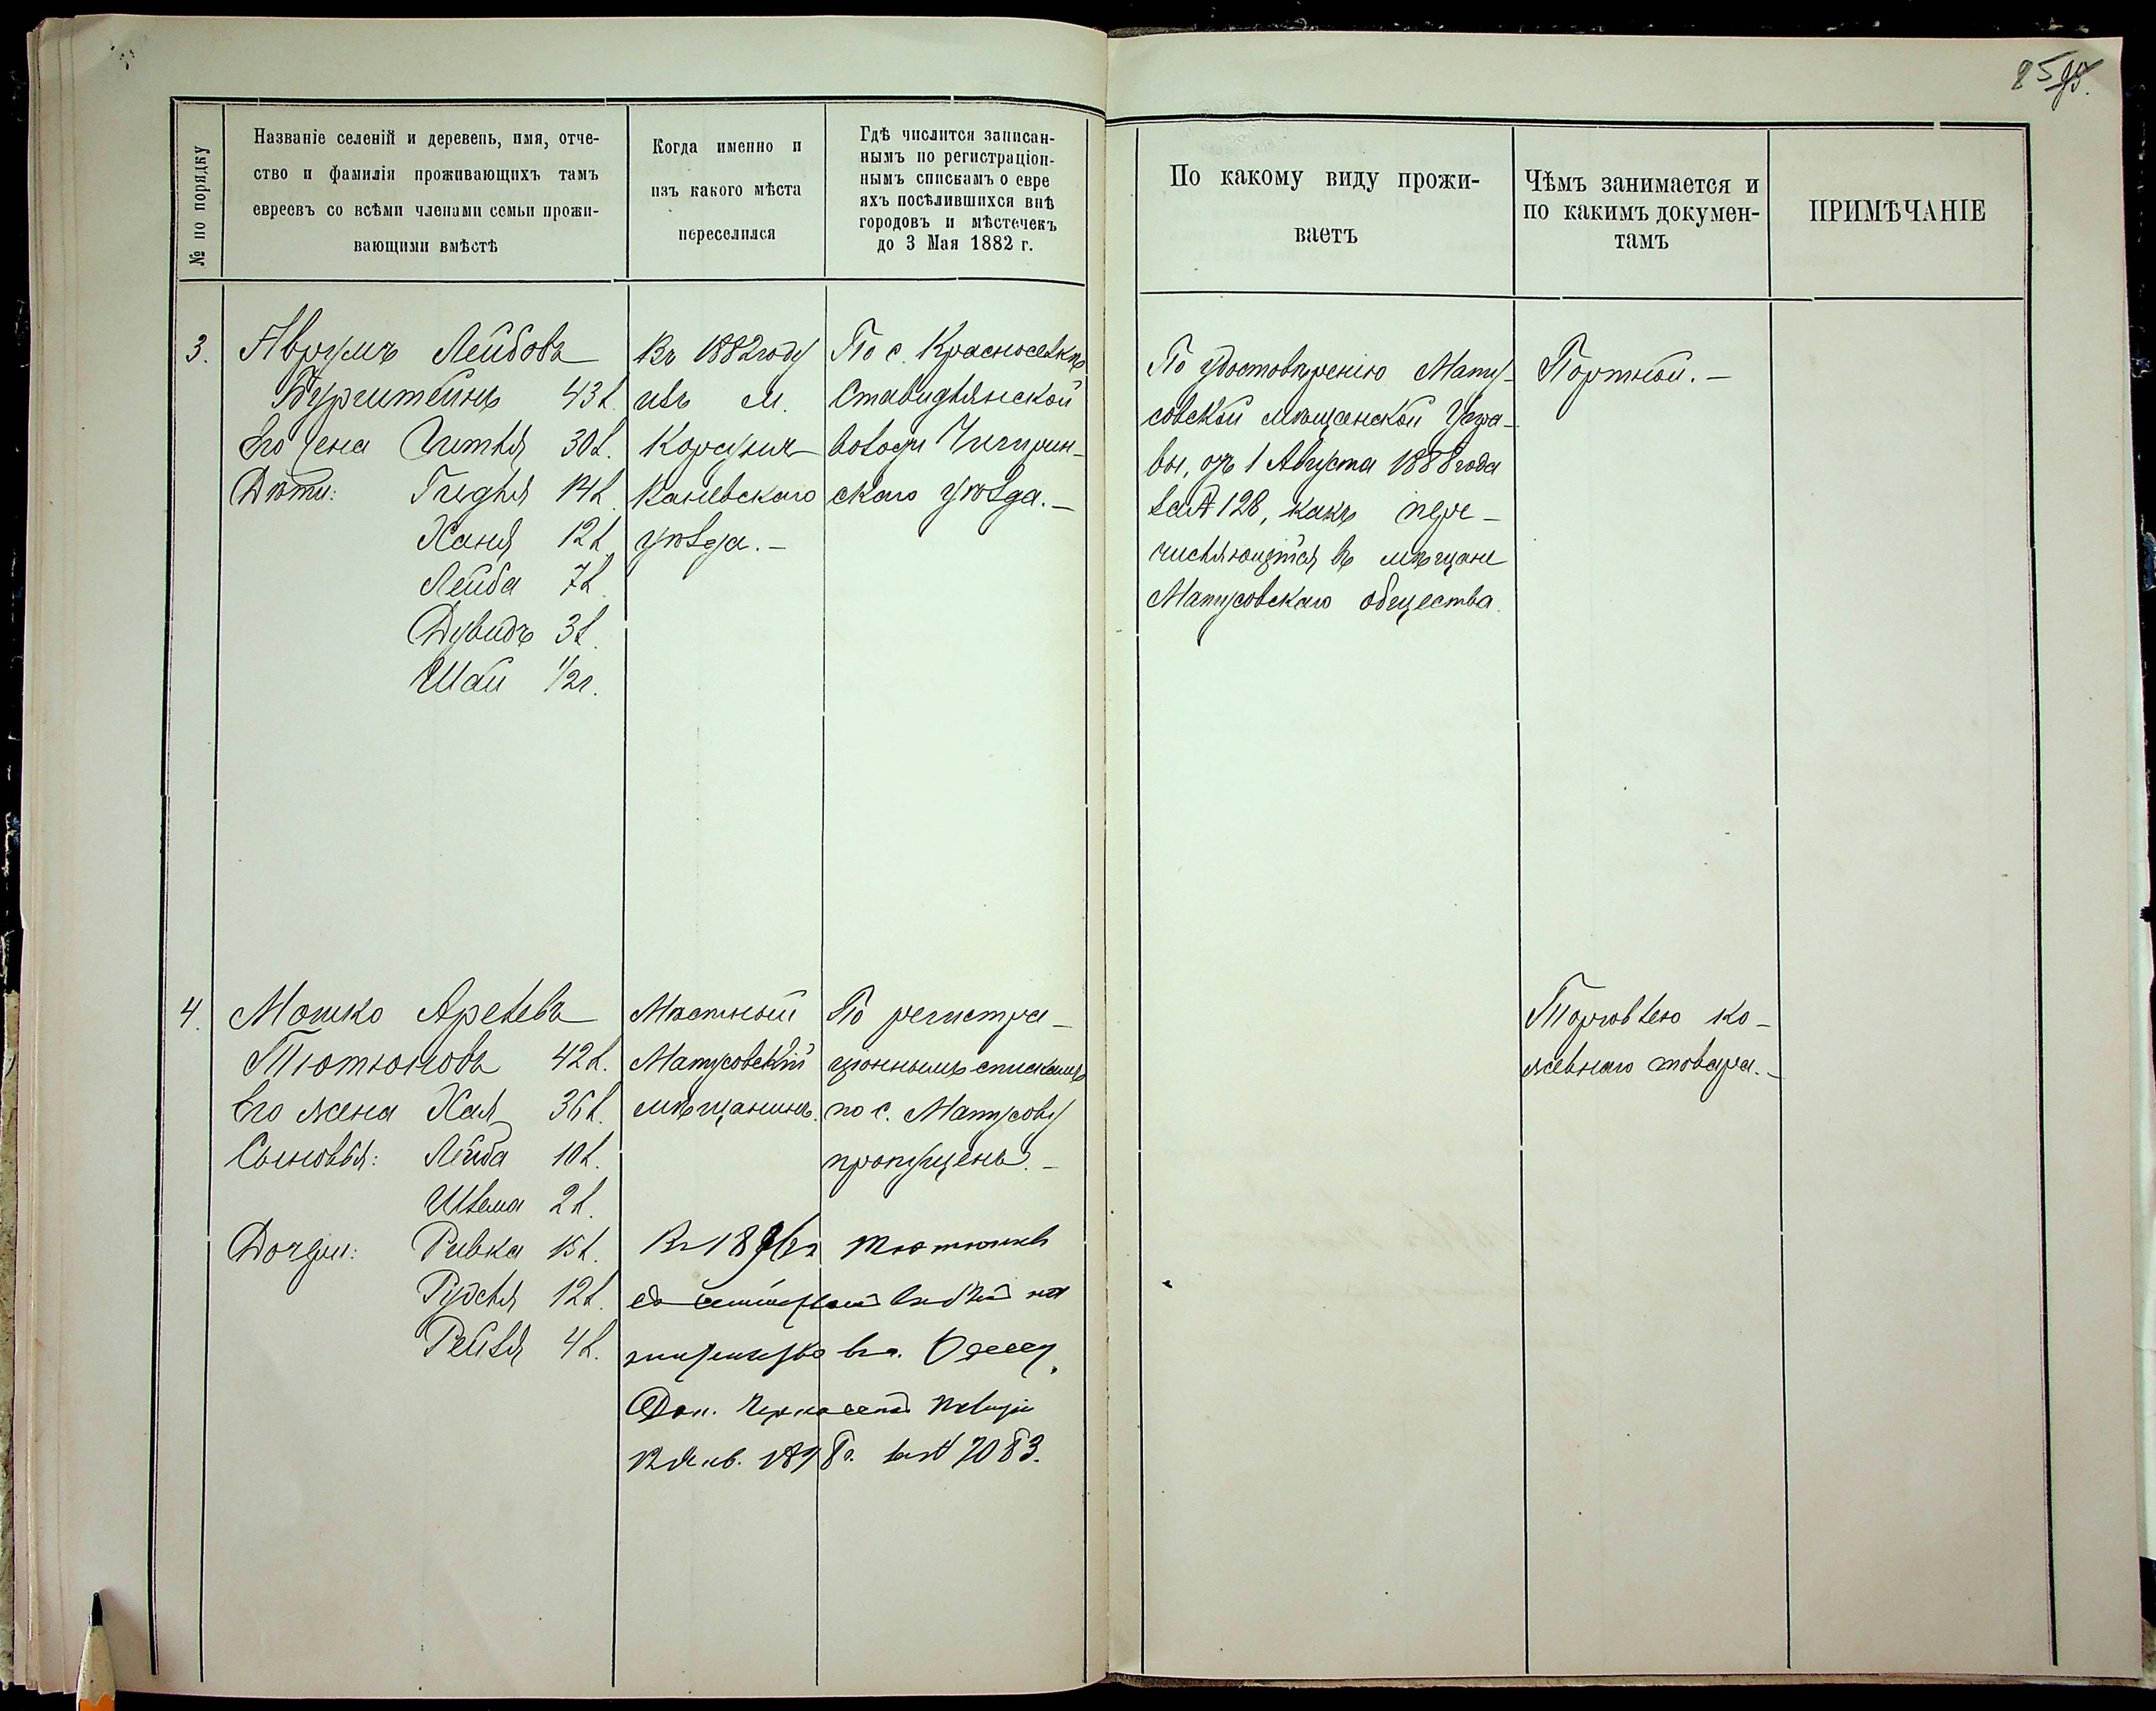 85
№ по порядку
Названіе селеній и деревень, имя, отче-
ство и фамилія проживающихъ тамъ
евреевъ со всѣми членами семьи прожи-
вающими вмѣстѣ
Когда именно и
изъ какого мѣста
переселился
Гдѣ числится записан-
нымъ по регистраціон-
нымъ спискамъ о евре
яхъ посѣлившихся внѣ
городовъ и мѣстечекъ
до 3 Мая 1882 г.
По какому виду прожи-
ваетъ
Чѣмъ занимается и
по какимъ докумен-
тамъ
ПРИМѢЧАНІЕ
3.
Аврумъ Лейбовъ
Бурштейнъ 43 л.
Его жена Читля 30 л.
Дѣти: Гидля 14 л.
Ханя 12 л.
Лейба 7 л.
Дувидъ 3 л.
Шаи 1/2 г.
Въ 1882 году
изъ м.
Корсуня
Каневскаго
уѣзда.-
По с. Красноселкѣ
Ставидлянской
волости Чигирин-
скаго уѣзда.-
По удостовѣренію Мату-
совской мѣщанской Упра-
вы, отъ 1 Августа 1888 года
за № 128, какъ пере-
числяющійся въ мѣщане
Матусовскаго общества.
Портной.-
4.
Мошко Арелевъ
Тютюновъ 42 л.
Его жена Хая 36 л.
Сыновья: Лейба 10 л.
Шлема 2 л.
Дочери: Ривка 15 л.
Рудля 12 л.
Рейзя 4 л.
Мѣстный
Матусовскій
мѣщанинъ.
По регистра-
ціоннымъ спискамъ
по с. Матусову
пропущенъ.-
Торговлею ко-
жевнаго товара.-
Въ 1896 г. Тютюновъ
на
въ г. Одессу.
Дон. Черкасской Полиціи
12 Янв. 1898 г. за № 7083.